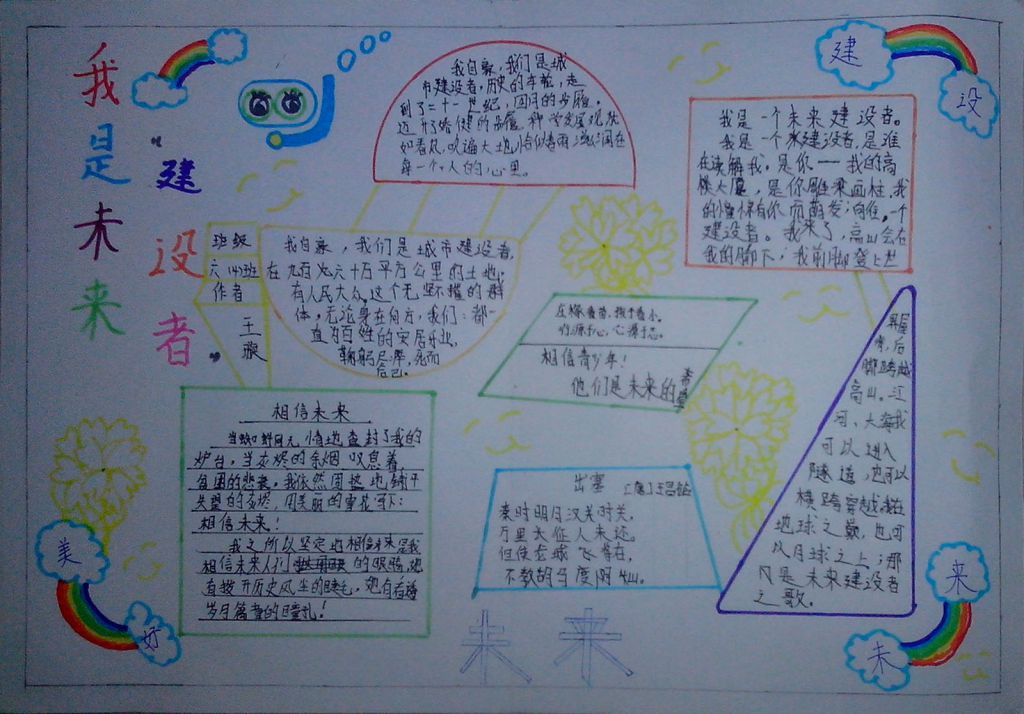 我是未来
"建设者"
建
设
美
好
未
来
班级
六(4)班
作者
王璇
我自豪,我们是城
市建设者,历史的车轮,走
到了二十一世纪,四月的步履,
迈开了矫健的
如春风吹遍大地,恰似春雨滋润在
每一个人的心里。
我自豪,我们是城市建设者,
在九百九六十万平方公里的土地,
有人民大众,这个无坚不摧的群
体,无论身在何方,我们:都一
直为百姓的安居乐业,
鞠躬尽瘁,死而
后已。
我是一个未来建设者。
我是一个未来建设者,是谁
在读解我,是你——我的高
楼大厦,是你雕梁画柱,我
的憧憬有你而萌发;向往,一个
建设者。我来了,高山会在
我的脚下,我前脚登上世
界屋
脊,后
脚跨越
高山。江
河、大海我
可以进入
隧道,也可以
横跨穿越,我在
地球之巅,也可
以月球之上;那
风是未来建设者
之歌。
相信青少年!
他们是未来的希望
相信未来
当蜘蛛网无情地查封了我的
炉台,当灰烬的余烟叹息着
贫困的悲哀,我依然固执地铺平
失望的灰烬,用美丽的雪花写下:
相信未来!
我之所以坚定地相信未来是我
相信未来人们的眼睛,她
有拨开历史风尘的睫毛,她有看透
岁月篇章的瞳孔!
出塞
[唐]王昌龄
秦时明月汉关时关,
万里长征人未还。
但使龙城飞将在,
不教胡马度阴山。
未来